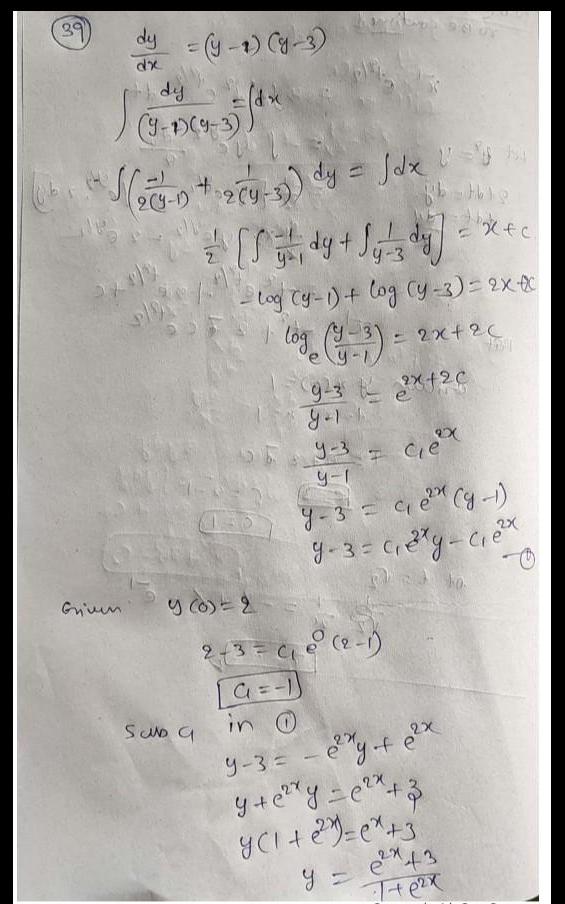 39
dy/dx = (y-1)(y-3)
∫ dy/((y-1)(y-3)) = ∫dx
∫(-1/(2(y-1)) + 1/(2(y-3))) dy = ∫dx
1/2 [∫ -1/(y-1) dy + ∫ 1/(y-3) dy] = x+c
-log(y-1) + log(y-3) = 2x+2c
log_e ((y-3)/(y-1)) = 2x+2c
(y-3)/(y-1) = e^(2x+2c)
(y-3)/(y-1) = c₁e^(2x)
y-3 = c₁e^(2x) (y-1)
y-3 = c₁e^(2x)y - c₁e^(2x) —①
Given y(0)=2
2-3 = c₁ e^0 (2-1)
c₁ = -1
Sub c₁ in ①
y-3 = -e^(2x)y + e^(2x)
y+e^(2x) y = e^(2x)+3
y(1+e^(2x)) = e^x+3
y = (e^(2x)+3)/(1+e^(2x))